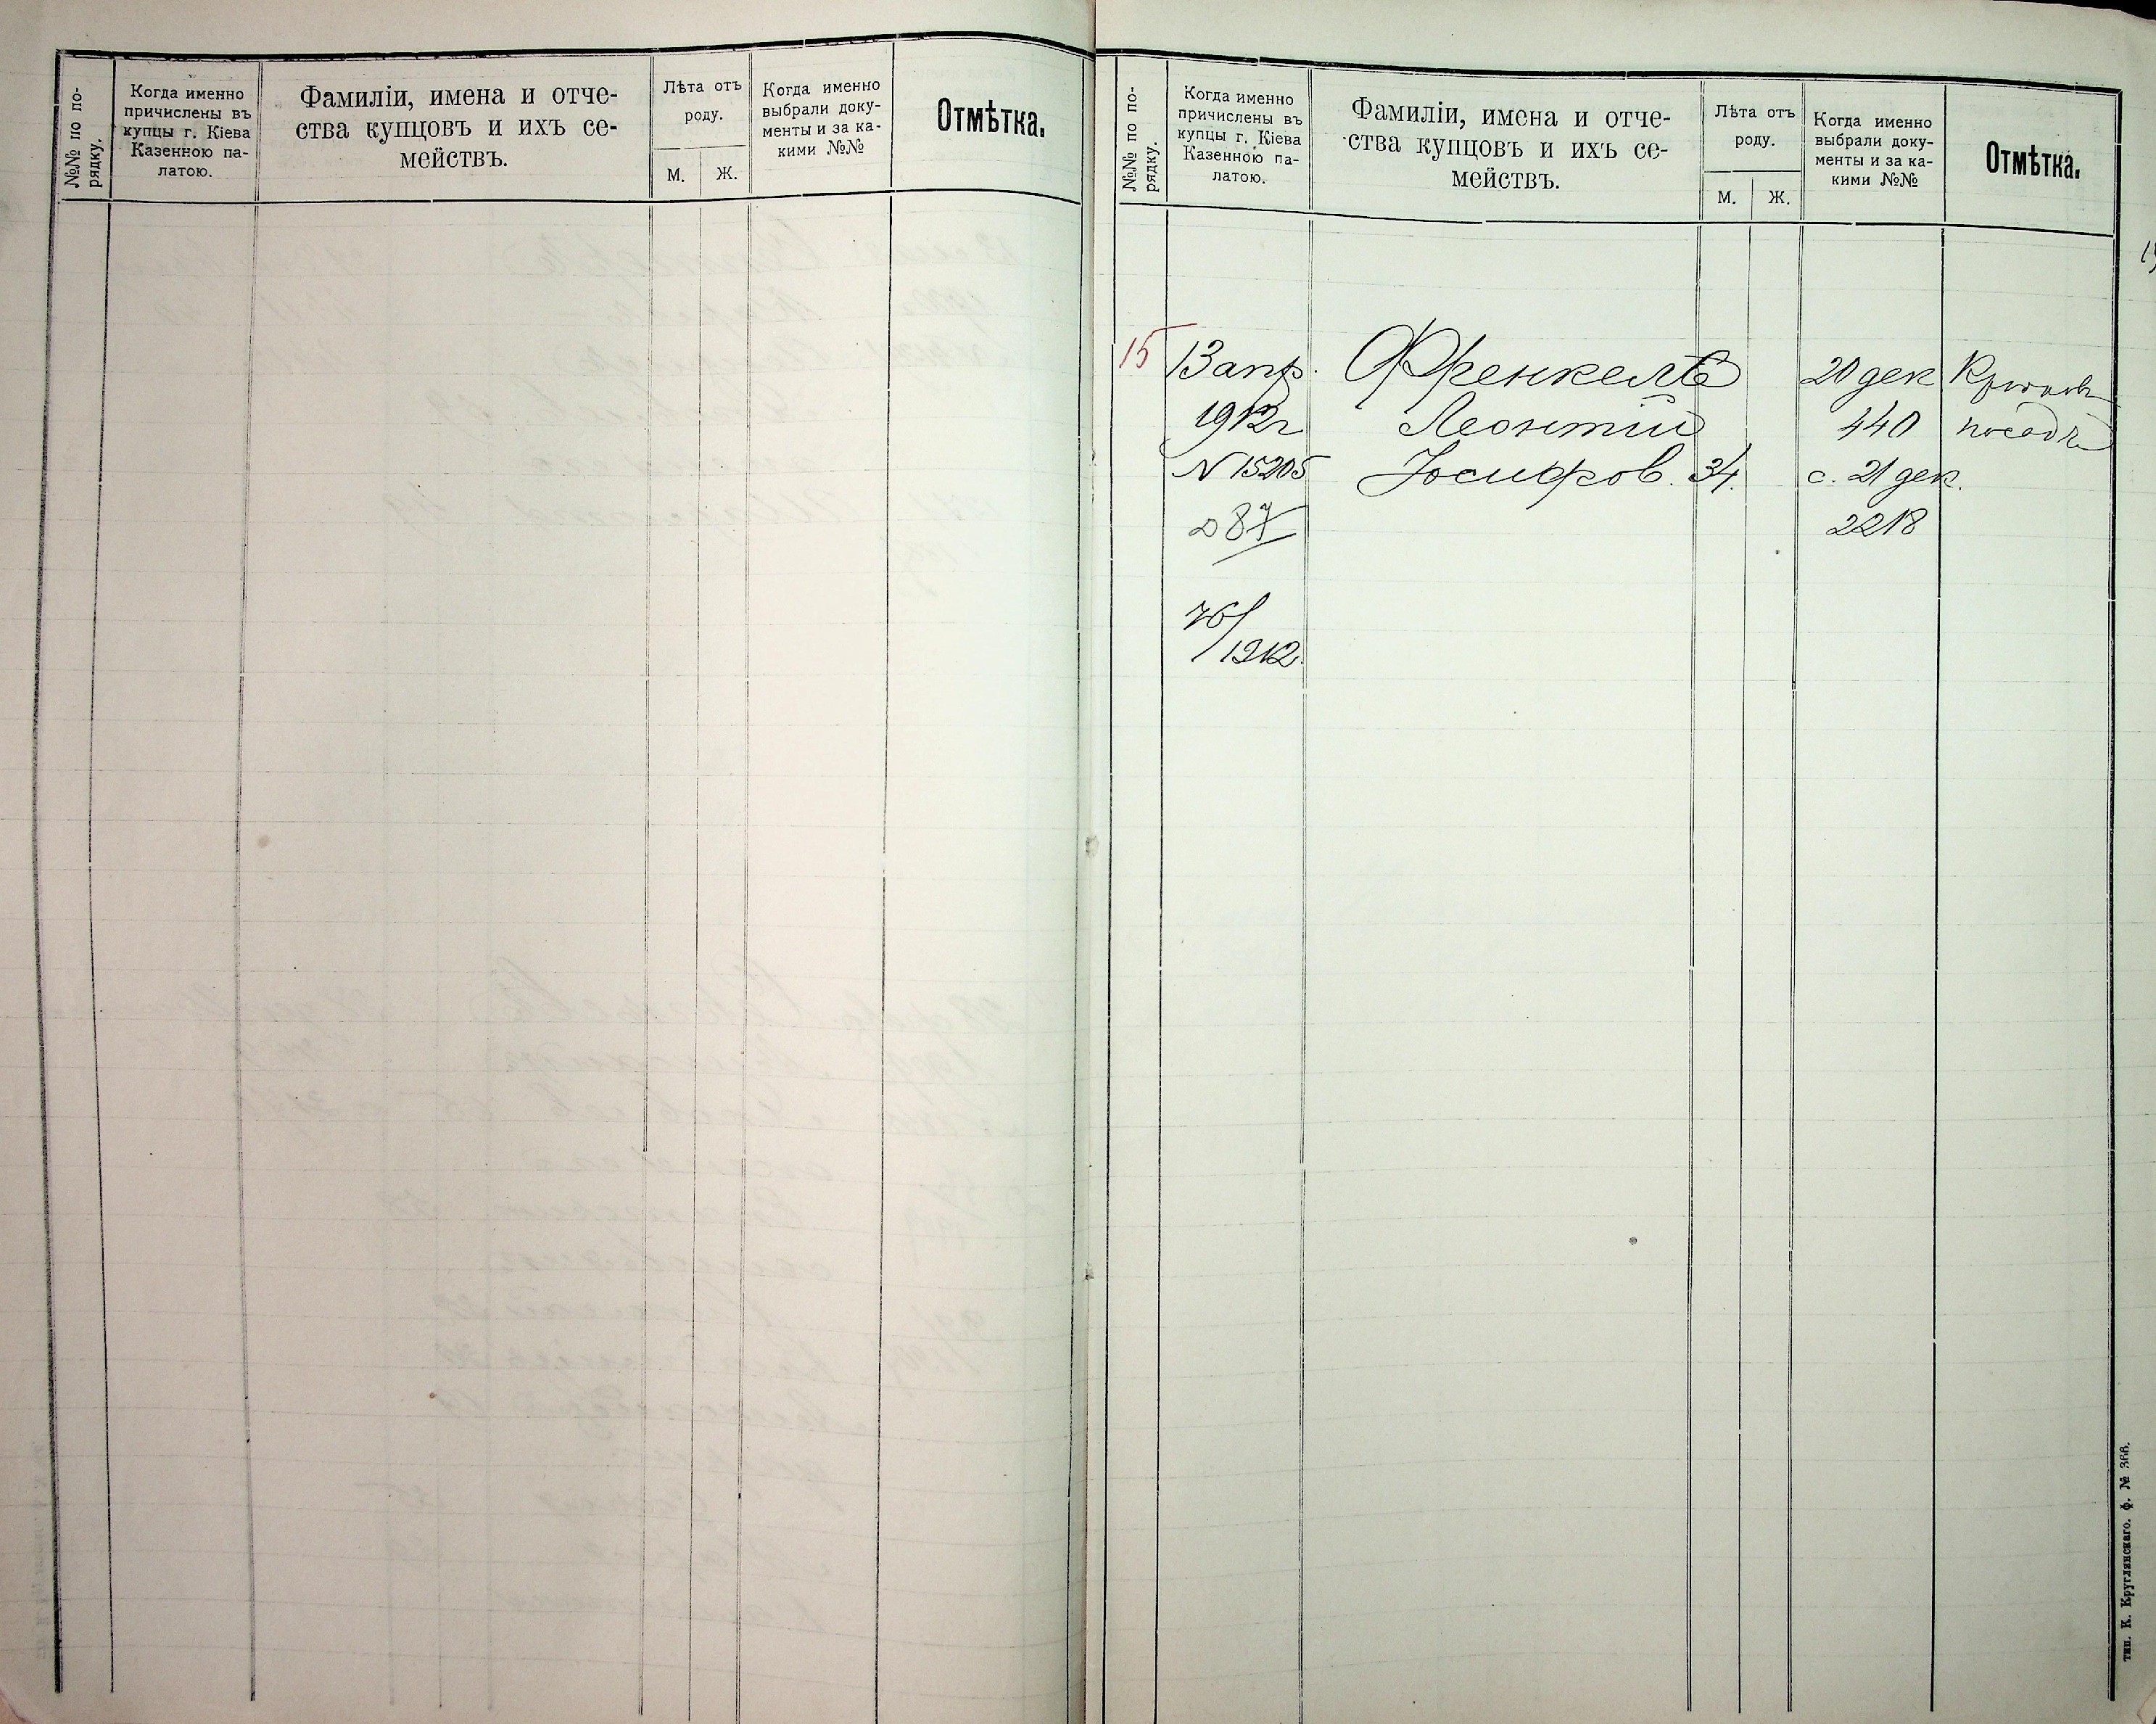 №№ по по-
рядку.
Когда именно
причислены въ
купцы г. Кіева
Казенною па-
латою.
Фамиліи, имена и отче-
ства купцовъ и ихъ се-
мействъ.
Лѣта отъ
роду.
М. Ж.
Когда именно
выбрали доку-
менты и за ка-
кими №№
Отмѣтка.
№№ по по-
рядку.
Когда именно
причислены въ
купцы г. Кіева
Казенною па-
латою.
Фамиліи, имена и отче-
ства купцовъ и ихъ се-
мействъ.
Лѣта отъ
роду.
М. Ж.
Когда именно
выбрали доку-
менты и за ка-
кими №№
Отмѣтка.
15 13 апр. Френкель 20 дек
1912 г Леонтій 440 посадѣ
N 15205 Іосифов. 34. с. 21 дек.
2218
87
76/
1912
тип. К. Круглянскаго. ф. № 366.